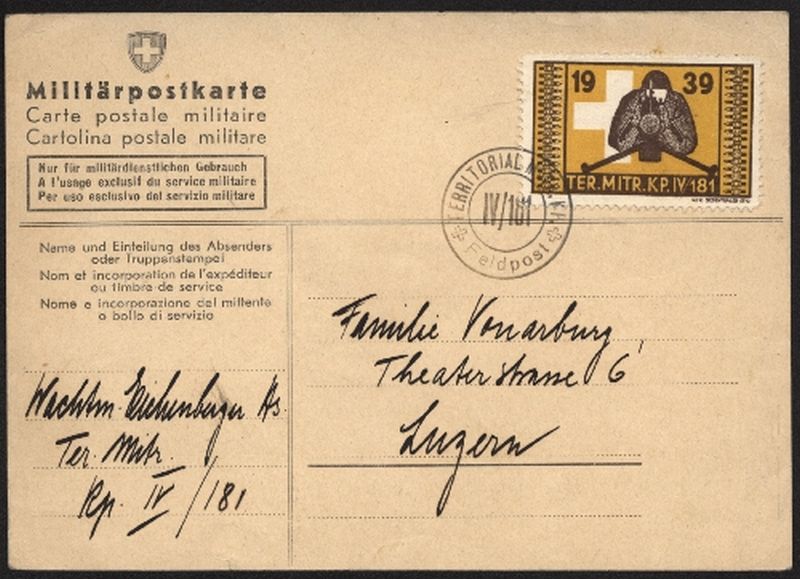 Militärpostkarte
Carte postale militaire
Cartolina postale militare
Nur für militärdienstlichen Gebrauch
A l'usage exclusif du service militaire
Per uso esclusivo del servizio militare
19 39
TER.MITR.KP.IV/181
TERRITORIAL
IV/181
Feldpost
Name und Einteilung des Absenders
oder Truppenstempel
Nom et incorporation de l'expéditeur
ou timbre de service
Nome e incorporazione del mittente
o bollo di servizio
Wachtm. Eichenberger Hs.
Ter. Mitr.
Kp. IV/181
Familie Vonarburg,
Theaterstrasse 6
Luzern